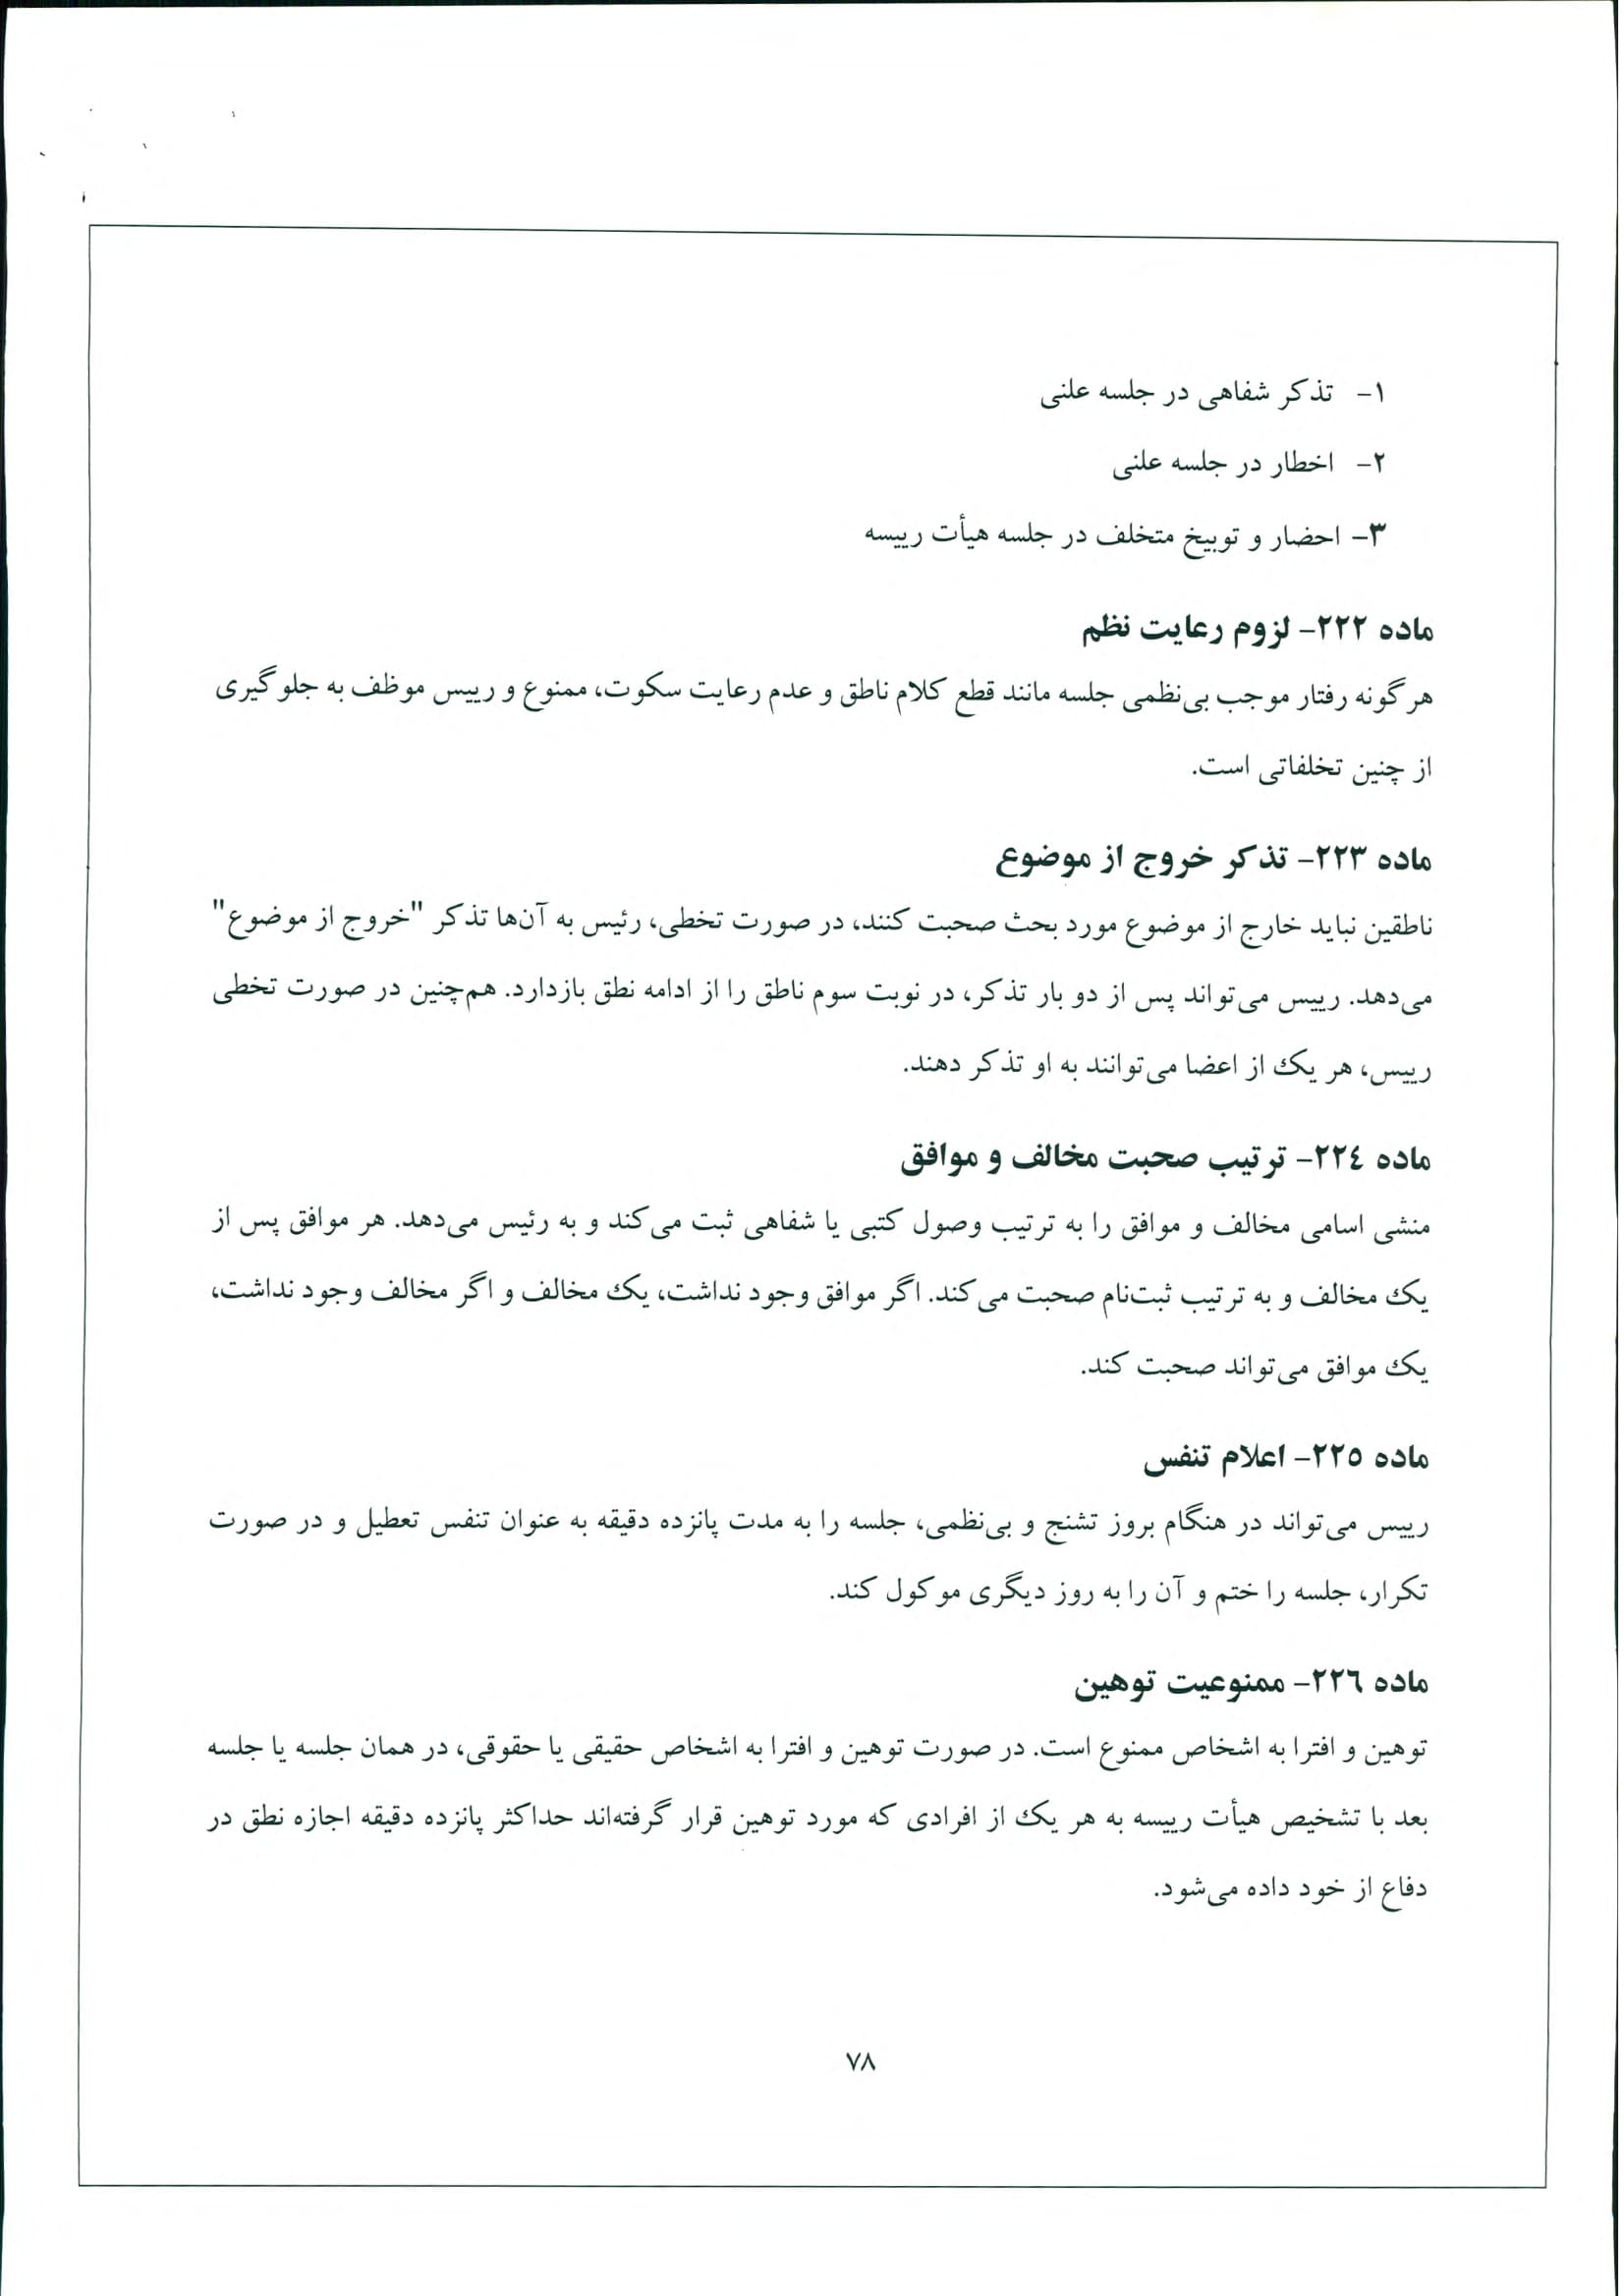 ۱- تذکر شفاهی در جلسه علنی
۲- اخطار در جلسه علنی
۳- احضار و توبیخ متخلف در جلسه هیأت رییسه
ماده ۲۲۲- لزوم رعایت نظم
هر گونه رفتار موجب بی‌نظمی جلسه مانند قطع کلام ناطق و عدم رعایت سکوت، ممنوع و رییس موظف به جلوگیری
از چنین تخلفاتی است.
ماده ۲۲۳- تذکر خروج از موضوع
ناطقین نباید خارج از موضوع مورد بحث صحبت کنند، در صورت تخطی، رئیس به آن‌ها تذکر "خروج از موضوع"
می‌دهد. رییس می‌تواند پس از دو بار تذکر، در نوبت سوم ناطق را از ادامه نطق بازدارد. هم‌چنین در صورت تخطی
رییس، هر یک از اعضا می‌توانند به او تذکر دهند.
ماده ۲۲٤- ترتیب صحبت مخالف و موافق
منشی اسامی مخالف و موافق را به ترتیب وصول کتبی یا شفاهی ثبت می‌کند و به رئیس می‌دهد. هر موافق پس از
یک مخالف و به ترتیب ثبت‌نام صحبت می‌کند. اگر موافق وجود نداشت، یک مخالف و اگر مخالف وجود نداشت،
یک موافق می‌تواند صحبت کند.
ماده ۲۲۵- اعلام تنفس
رییس می‌تواند در هنگام بروز تشنج و بی‌نظمی، جلسه را به مدت پانزده دقیقه به عنوان تنفس تعطیل و در صورت
تکرار، جلسه را ختم و آن را به روز دیگری موکول کند.
ماده ۲۲٦- ممنوعیت توهین
توهین و افترا به اشخاص ممنوع است. در صورت توهین و افترا به اشخاص حقیقی یا حقوقی، در همان جلسه یا جلسه
بعد با تشخیص هیأت رییسه به هر یک از افرادی که مورد توهین قرار گرفته‌اند حداکثر پانزده دقیقه اجازه نطق در
دفاع از خود داده می‌شود.
۷۸